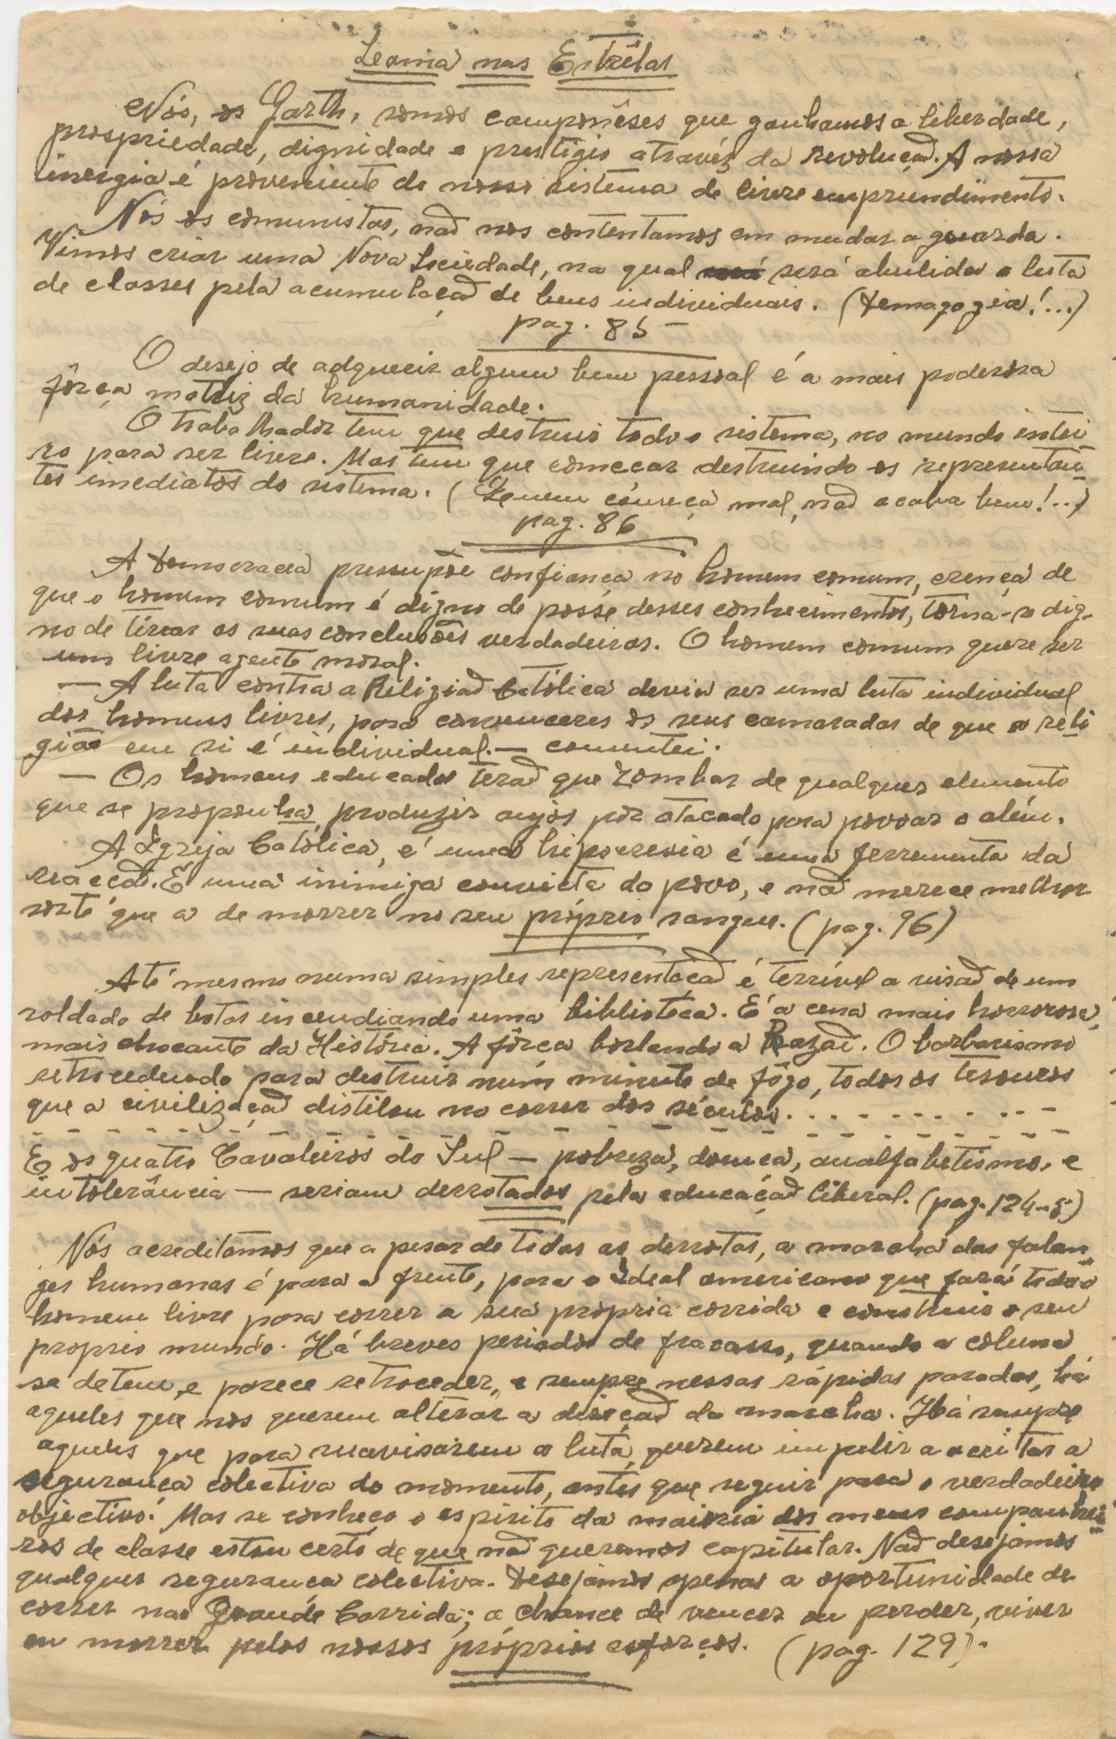 Leoma nas Estrêlas
Nós, os Garth, somos camponêses que ganhamos a liberdade,
prospriedade, dignidade e prestígio atravéz da revolução. A nossa
inergia é proveniente do nosso sistema de livre empreendimento.
Nós os comunistas, não nos contentamos em mudar a guarda.
Vimos criar uma Nova Sociedade, na qual será abulida a luta
de classes pela acumulação de bens individuais. (Demagogia!...)
pag. 85 -
O desejo de adquerir algum bem pessoal é a mais poderosa
fôrça motriz da humanidade.
O trabalhador tem que destruir todo o sistema, no mundo intei
ro para ser livre. Mas tem que começar destruindo os representan-
tes imediatos do sistema. (Quem começa mal, não acaba bem!...)
pag. 86
A Democracia pressupõe confiança no homem comum, crença de
que o homem comum é digno de posse desses conhecimentos, torná-o dig-
no de tirar as suas conclusões verdadeiras. O homem comum quere ser
um livre agente moral.
— A luta contra a Religião Católica devia ser uma luta individual
dos homens livres, para convenceres os seus camaradas de que a reli
gião em si é individual. — comentei.
— Os homens educados terão que zombar de qualquer elemento
que se proponha produzir anjos por atacado para povoar o além.
A Igreja Católica, é uma hipocresia é uma ferramenta da
reacção. É uma inimiga convicta do povo, e não merece melhor
sorte que a de morrer no seu próprio sangue. (pag. 96)
Até mesmo numa simples representação é terrível a visão de um
soldado de botas incendiando uma biblioteca. É a cena mais horrorosa,
mais chocante da História. A fôrça borlando a Razão. O barbarismo
retrocedendo para destruir num minuto de fôgo, todos os tesouros
que a civilização distilou no correr dos séculos. . . . . . . . . . - -
- - - - - - - - - - - - - - - - - - - - - - - - - - - -
E os quatro Cavaleiros do Sul — pobreza, doença, analfabetismo, e
intolerância — seriam derrotados pela educação liberal. (pag. 124-5)
Nós acreditamos que a pesar de todas as derrotas, a marcha das falan-
ges humanas é para a frente, para o Ideal americano que fará todo o
homem livre para correr a sua própria corrida e construir o seu
proprio mundo. Há breves periodos de fracasso, quando a coluna
se detem e parece retroceder, e sempre nessas rápidas paradas, há
aqueles que nos querem alterar a direcção da marcha. Há sempre
aqueles que para suavisarem a luta, querem impelir a aceitar a
segurança colectiva do momento, antes que seguir para o verdadeiro
objectivo. Mas se conheço o espírito da maioria dos meus companhei
ros de classe estou certo de que não queremos capitular. Não desejamos
qualquer segurança colectiva. Desejamos apenas a oportunidade de
correr na Grande Corrida; a chance de vencer ou perder, viver
ou morrer pelos nossos próprios esforços. (pag. 129).